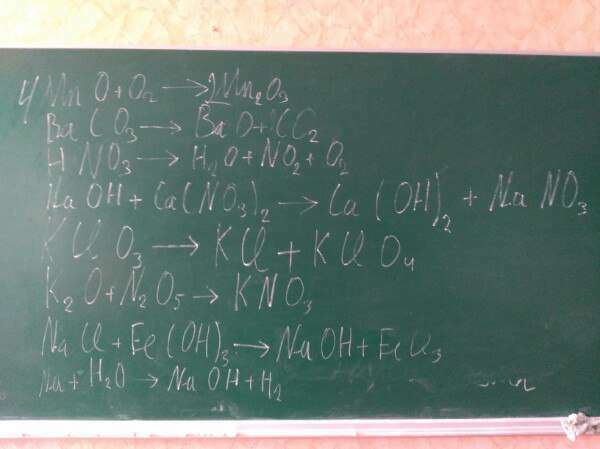 4MnO+O2→2Mn2O3
BaCO3→BaO+CO2
HNO3→H2O+NO2+O2
NaOH+Ca(NO3)2→Ca(OH)2+NaNO3
KClO3→KCl+KClO4
K2O+N2O5→KNO3
NaCl+Fe(OH)3→NaOH+FeCl3
Na+H2O→NaOH+H2